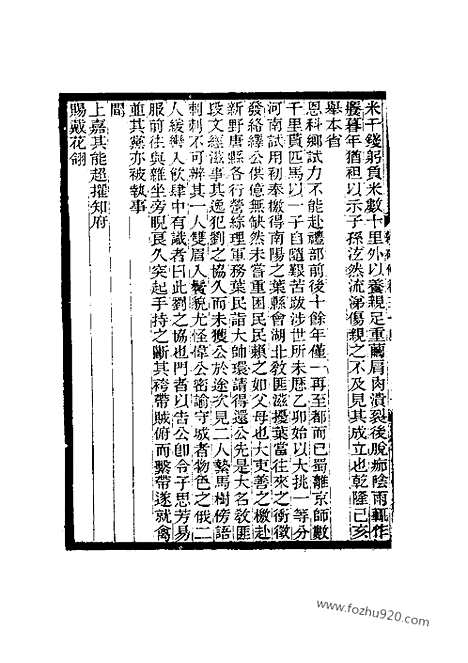 米千錢躬負米數十里外以養親足重繭肩肉潰裂後脫痂陰雨輒作
暮年猶袒以示子孫泫然流涕傷親之不及見其成立也乾隆己亥
舉本省
恩科鄉試力不能赴禮部前後十餘年僅一再至都而已蜀離京師數
千里貰匹馬以一子自隨艱苦跋涉世所未歷乙卯始以大挑一等分
河南試用初奉檄得南陽之葉縣會湖北敎匪滋擾葉當往來之衝徵
發絡繹公供億無缺然未嘗重困民民賴之如父母也大吏善之檄赴
新野唐縣各行營綜理軍務葉民詣大帥環請得還公先是大名敎匪
段文經滋事其逸犯劉之協久而未獲公於途次見二人繫馬樹傍語
刺刺不可辨其一人雙眉入鬢貌尤怪偉公密諭守城者物色之俄二
人緩轡入飲肆中有識者曰此劉之協也門者以告公卽令子思芳易
服前往與雜坐旁睨良久突起手持之斷其袴帶賊俯而繫帶遂就禽
並其黨亦被執事
聞
上嘉其能超擢知府
賜戴花翎
www.fozhu920.com